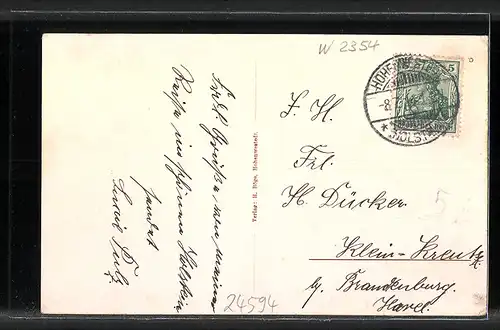 W 2354
5
HOHENWESTEDT
* HOLSTEIN
Herzl. Grüße von meiner
Reise im schönen Holstein
sendet
Verlag: H. Rögs, Hohenwestedt.
F. H.
Frl.
H. Dücker
Klein-Kreutz
b/ Brandenburg.
Havel.
5
24594